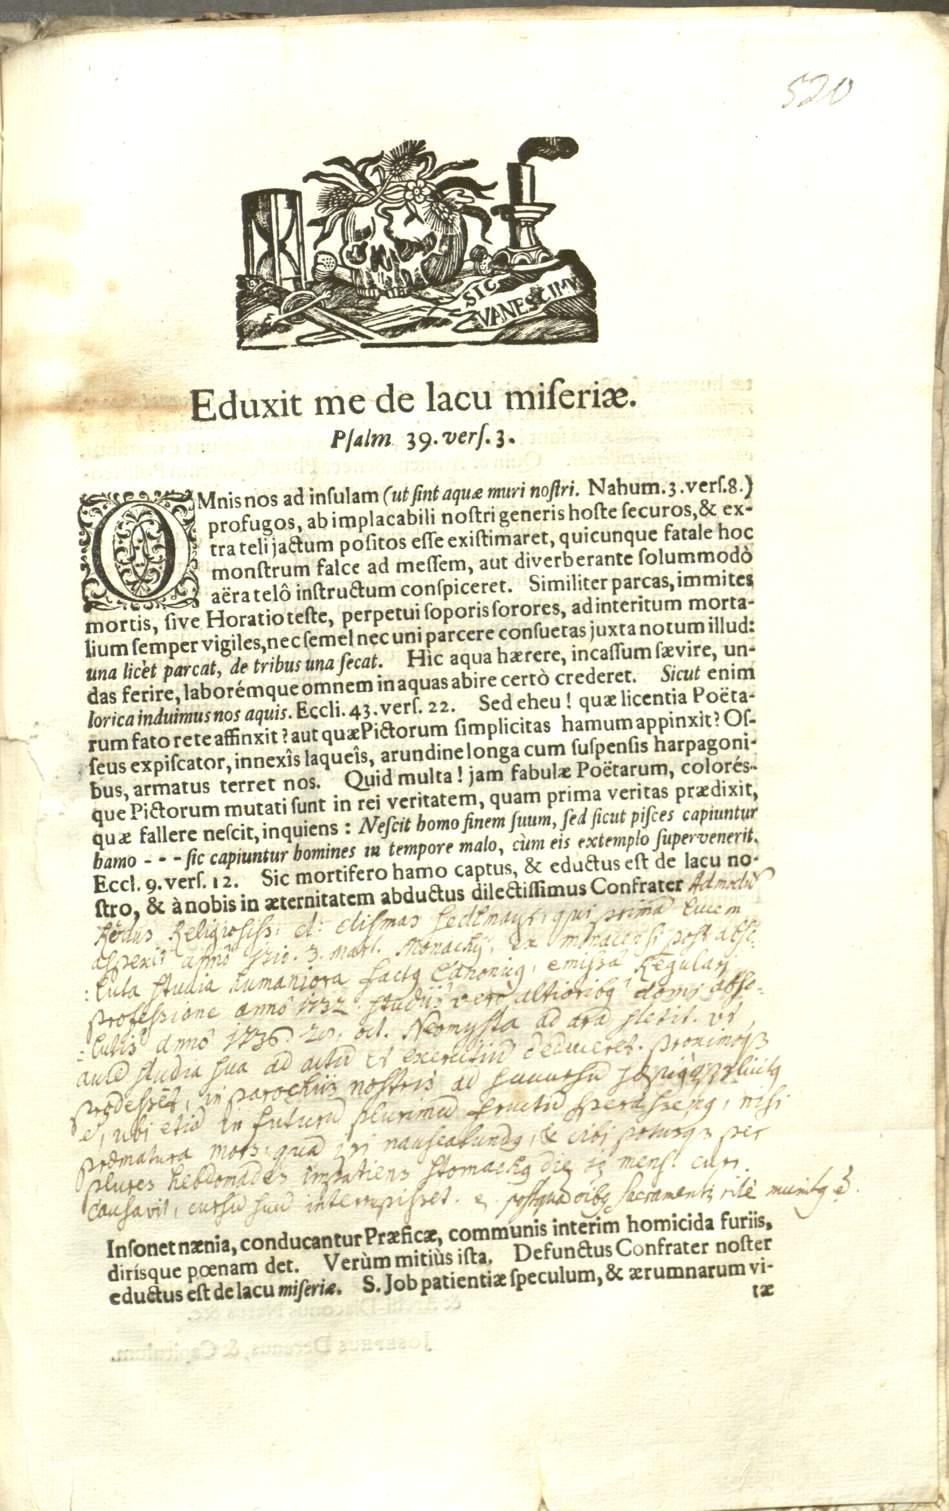 520
SIC
VANESCIMVS
Eduxit me de lacu miſeriæ.
Pſalm 39. verſ. 3.
OMnis nos ad inſulam (ut ſint aquæ muri noſtri. Nahum. 3. verſ. 8.)
profugos, ab implacabili noſtri generis hoſte ſecuros, & ex-
tra teli jactum poſitos eſſe exiſtimaret, quicunque fatale hoc
monſtrum falce ad meſſem, aut diverberante ſolummodò
aëra telô inſtructum conſpiceret. Similiter parcas, immites
mortis, ſive Horatio teſte, perpetui ſoporis ſorores, ad interitum morta-
lium ſemper vigiles, nec ſemel nec uni parcere conſuetas juxta notum illud:
una licèt parcat, de tribus una ſecat. Hic aqua hærere, incaſſum ſævire, un-
das ferire, laborémque omnem in aquas abire certò crederet. Sicut enim
lorica induimus nos aquis. Eccli. 43. verſ. 22. Sed eheu! quæ licentia Poëta-
rum fato rete affinxit? aut quæ Pictorum ſimplicitas hamum appinxit? Oſ-
ſeus expiſcator, innexîs laqueîs, arundine longa cum ſuſpenſis harpagoni-
bus, armatus terret nos. Quid multa! jam fabulæ Poëtarum, colorés-
que Pictorum mutati ſunt in rei veritatem, quam prima veritas prædixit,
quæ fallere neſcit, inquiens: Neſcit homo finem ſuum, ſed ſicut piſces capiuntur
hamo - - - ſic capiuntur homines in tempore malo, cùm eis extemplo ſupervenerit.
Eccl. 9. verſ. 12. Sic mortifero hamo captus, & eductus eſt de lacu no-
ſtro, & à nobis in æternitatem abductus dilectiſſimus Confrater Admodū
Rdus Religiosiss: d: Dismas qui primā lucem
aspexit anno 3. Mart. Monachij, ex post abso-
:luta studia humaniora factq Canonicq, emissa Regulari
professione anno 1732. studiis vero altioribq domi abso-
:lutis anno 1736. oct. Neomysta ad arā stetit. Vt
studia sua ad actū et exercitiū deduceret, proximoq3
prodesset, in parochiis nostris ad
ē, ubi etiā in futurū plurimū fructū nisi
præmatura mors, quā nauseabundq, & cibi potusq3 per
plures hebdomades stomachq die mens. curr.
causavit, cursū suū interrupisset. postquā oibq sacramentis ritè munitq ē.
Inſonet nænia, conducantur Præficæ, communis interim homicida furiis,
dirísque pœnam det. Verùm mitiùs iſta. Defunctus Confrater noſter
eductus eſt de lacu miſeriæ. S. Job patientiæ ſpeculum, & ærumnarum vi-
tæ